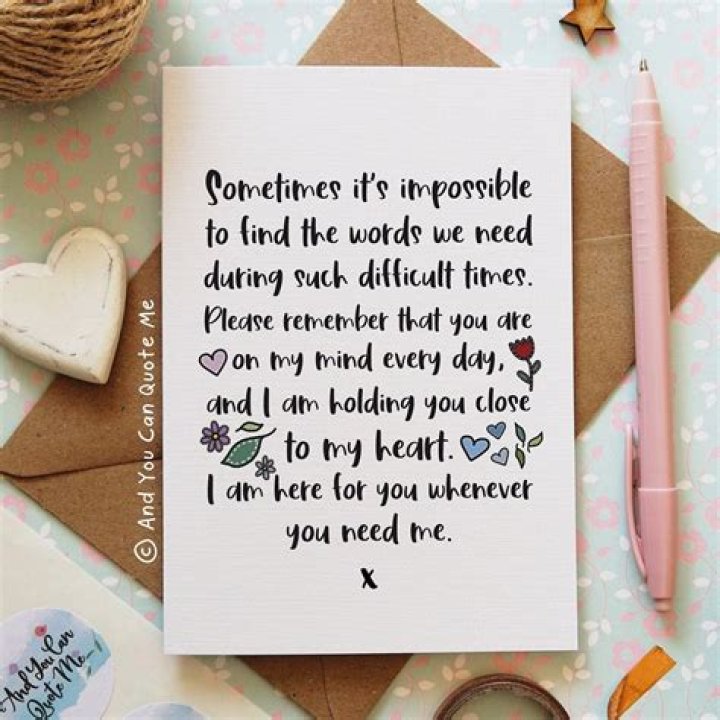 Sometimes it's impossible
to find the words we need
during such difficult times.
Please remember that you are
on my mind every day,
and I am holding you close
to my heart.
I am here for you whenever
you need me.
x
© And You Can Quote Me
And You Can
Quote Me